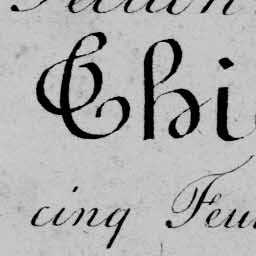 Chi
cinq Feu